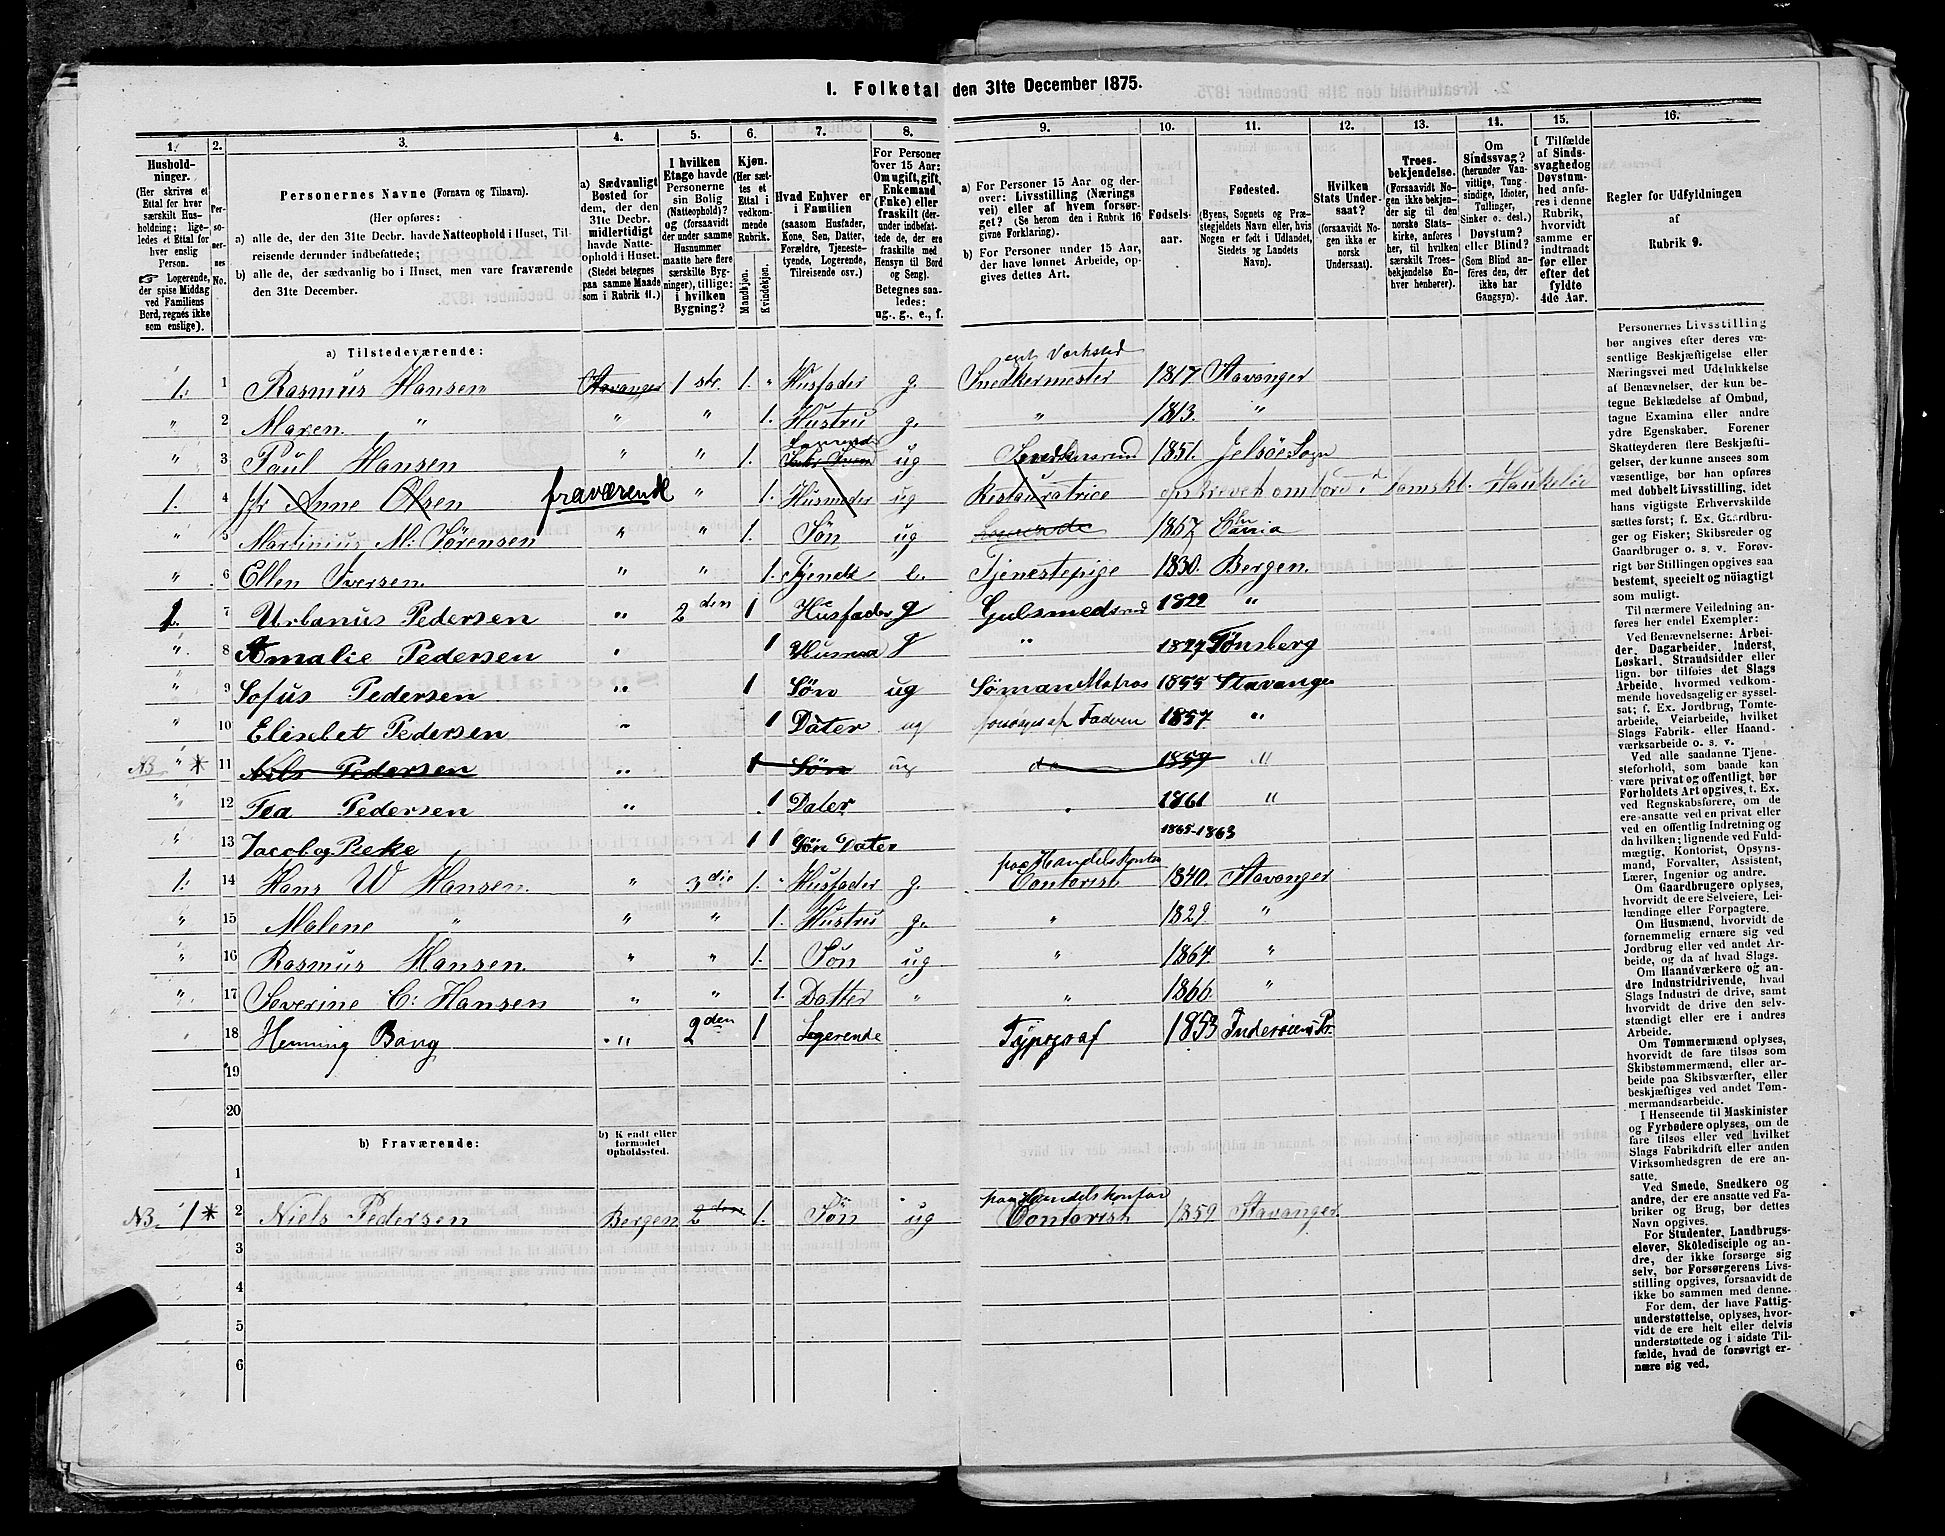 1. Folketal den 31te December 1875.
1. 2. 3. 4. 5. 6. 7. 8. 9. 10. 11. 12. 13. 14. 15. 16.
Hushold-
ninger.
(Her skrives et
Ettal for hver
særskilt Hus-
holdning; lige-
ledes et Ettal for
hver enslig
Person.
☞ Logerende,
der spise Middag
ved Familiens
Bord, regnes ikke
som enslige).
Per-
so-
ner-
nes
No.
Personernes Navne (Fornavn og Tilnavn).
(Her opføres:
a) alle de, der den 31te Decbr. havde Natteophold i Huset, Til-
reisende derunder indbefattede;
b) alle de, der sædvanlig bo i Huset, men vare fraværende
den 31te December.
a) Sædvanligt
Bosted for
dem, der den
31te Decbr.
midlertidigt
havde Natte-
ophold i Huset.
(Stedet betegnes
paa samme Maade
som i Rubrik 11.)
I hvilken
Etage havde
Personerne
sin Bolig
(Natteophold)?
og (forsaavidt
der under samme
Husnummer
maatte høre flere
særskilte Byg-
ninger), tillige:
i hvilken
Bygning?
Kjøn.
(Her sæt-
tes et
Ettal i
vedkom-
mende
Rubrik.
Mandkjøn.
Kvindekjøn.
Hvad Enhver er
i Familien
(saasom Husfader,
Kone, Søn, Datter,
Forældre, Tjeneste-
tyende, Logerende,
Tilreisende osv.)
For Personer
over 15 Aar:
Om ugift, gift,
Enkemand
(Enke) eller
fraskilt (der-
under indbefat-
tede de, der ere
fraskilte med
Hensyn til Bord
og Seng).
Betegnes saa-
ledes:
ug., g., e., f.
a) For Personer 15 Aar og der-
over: Livsstilling (Nærings-
vei) eller af hvem forsør-
get? (Se herom den i Rubrik 16
givne Forklaring).
b) For Personer under 15 Aar,
der have lønnet Arbeide, op-
gives dettes Art.
Fødsels-
aar.
Fødested.
(Byens, Sognets og Præ-
stegjeldets Navn eller, hvis
Nogen er født i Udlandet,
Stedets og Landets
Navn).
Hvilken
Stats Under-
saat?
(forsaavidt No-
gen ikke er
norsk
Undersaat).
Troes-
bekjendelse.
(Forsaavidt No-
gen ikke bekjen-
der sig til den
norske Stats-
kirke, anføres
særskilt Troes-
bekjendelse En-
hver henhører).
Om
Sindssvag?
(herunder Van-
vittige, Tung-
sindige, Idioter,
Tullinger,
Sinker o. desl.)
Døvstum?
eller Blind?
(Som Blind an-
føres den, der
ikke har
Gangsyn).
I Tilfælde
af Sinds-
svaghed og
Døvstum-
hed anfø-
res i denne
Rubrik,
hvorvidt
samme er
indtraadt
før eller
efter det
fyldte
4de Aar.
Regler for Udfyldningen
af
Rubrik 9.
a) Tilstedeværende:
1. 1 Rasmus Hansen Stavanger 1 str. 1. " Husfader g. Snedkermester eget Værksted 1817. Stavanger
" 2 Maren " " " 1. Hustru g. " 1813. "
" 3 Paul Hansen " " 1. Logerende ug Snedkersvend 1851. Jelsöe Sogn
1. 4 Jfr Anne Olsen fraværende " 1. Husmoder ug Restauratrice opskrevet ombord i Damskl. Haukelid
" 5 Martinius M. Sörensen " " 1. Søn ug Logerende 1857
" 6 Ellen Iversen " " 1. Tjeneste e. Tjenestepige 1830. Bergen.
1. 7 Urbanus Pedersen " 2 den 1 Husfader g Gulsmedsvend 1822 "
" 8 Amalie Pedersen " 1 g " 1827 Tønsberg
" 9 Sofus Pedersen " 1 Søn ug Sømand Matros 1855 Stavanger
" 10 Elisebet Pedersen " 1 Dater ug forsørges af Faderen 1857. "
NB " * 11 Nils Pedersen " 1 Søn ug do 1859 "
" 12 Tea Pedersen " 1 Dater 1861 "
" 13 Jacob og Reke 1 1 Søn Dater 1865-1863
1. 14 Hans W Hansen. " 3 die 1. " Husfader g. paa Handelskontor Contorist 1840. Stavanger
" 15 Malene " " " 1. Hustru g. " 1829. "
" 16 Rasmus Hansen. " " 1. Søn ug " 1864. "
" 17 Severine C: Hansen " " 1. Datter " " 1866. "
" 18 Henning Bang " 2 den 1 Logerende Typograf 1853 Inderøens Pr.
19
20
b) Fraværende:
b) Kjendt eller
formodet
Opholdssted.
1
NB. 1 * 2 Niels Pedersen Bergen 2 den 1. Søn ug paa Handelskontor Contorist 1859. Stavanger
3
4
5
6
Personernes Livsstilling
bør angives efter deres væ-
sentlige Beskjæftigelse eller
Næringsvei med Udelukkelse
af Benævnelser, der kun be-
tegne Beklædelse af Ombud,
tagne Examina eller andre
ydre Egenskaber. Forener
Skatteyderen flere Beskjæfti-
gelser, der kunne ansees som
væsentlige, bør han opføres
med dobbelt Livsstilling, idet
hans vigtigste Erhvervskilde
sættes først; f. Ex. Gaardbru-
ger og Fisker; Skibsreder og
Gaardbruger o. s. v. Forøv-
rigt bør Stillingen opgives saa
bestemt, specielt og nøiagtigt
som muligt.
Til nærmere Veiledning an-
føres her endel Exempler:
Ved Benævnelserne: Arbei-
der, Dagarbeider, Inderst,
Løskarl, Strandsidder eller
lign. bør tilføies det Slags
Arbeide, hvormed vedkom-
mende hovedsagelig er syssel-
sat; f. Ex. Jordbrug, Tomte-
arbeide, Veiarbeide, hvilket
Slags Fabrik- eller Haand-
værksarbeide o. s. v.
Ved alle saadanne Tjene-
steforhold, som baade kan
være privat og offentligt, bør
Forholdets Art opgives, t. Ex.
ved Regnskabsførere, om de
ere ansatte ved en privat eller
ved en offentlig Indretning og
da hvilken; lignende ved Fuld-
mægtig, Kontorist, Opsyns-
mand, Forvalter, Assistent,
Lærer, Ingeniør og andre.
Om Gaardbrugere oplyses,
hvorvidt de ere Selveiere, Lei-
lændinge eller Forpagtere.
Om Husmænd, hvorvidt de
fornemmelig ernære sig ved
Jordbrug eller ved andet Ar-
beide, og da af hvad Slags.
Om Haandværkere og an-
dre Industridrivende, hvad
Slags Industri de drive, samt
hvorvidt de drive den selv-
stændigt eller ere i andres
Arbeide.
Om Tømmermænd oplyses,
hvorvidt de fare tilsøs som
Skibstømmermænd, eller ar-
beide paa Skibsværfter, eller
beskjæftiges ved andet Tøm-
mermandsarbeide.
I Henseende til Maskinister
og Fyrbødere oplyses, om de
fare tilsøs eller ved hvilket
Slags Fabrikdrift eller anden
Virksomhedsgren de ere an-
satte.
Ved Smede, Snedkere og
andre, der ere ansatte ved Fa-
briker og Brug, bør dettes
Navn opgives.
For Studenter, Landbrugs-
elever, Skoledisciple og an-
dre, der ikke forsørge sig
selv, bør Forsørgerens Livs-
stilling opgives, forsaavidt de
ikke bo sammen med denne.
For dem, der have Fattig-
understøttelse, oplyses, hvor-
vidt de ere helt eller delvis
understøttede og i sidste Til-
fælde, hvad de forøvrigt er-
nære sig ved.